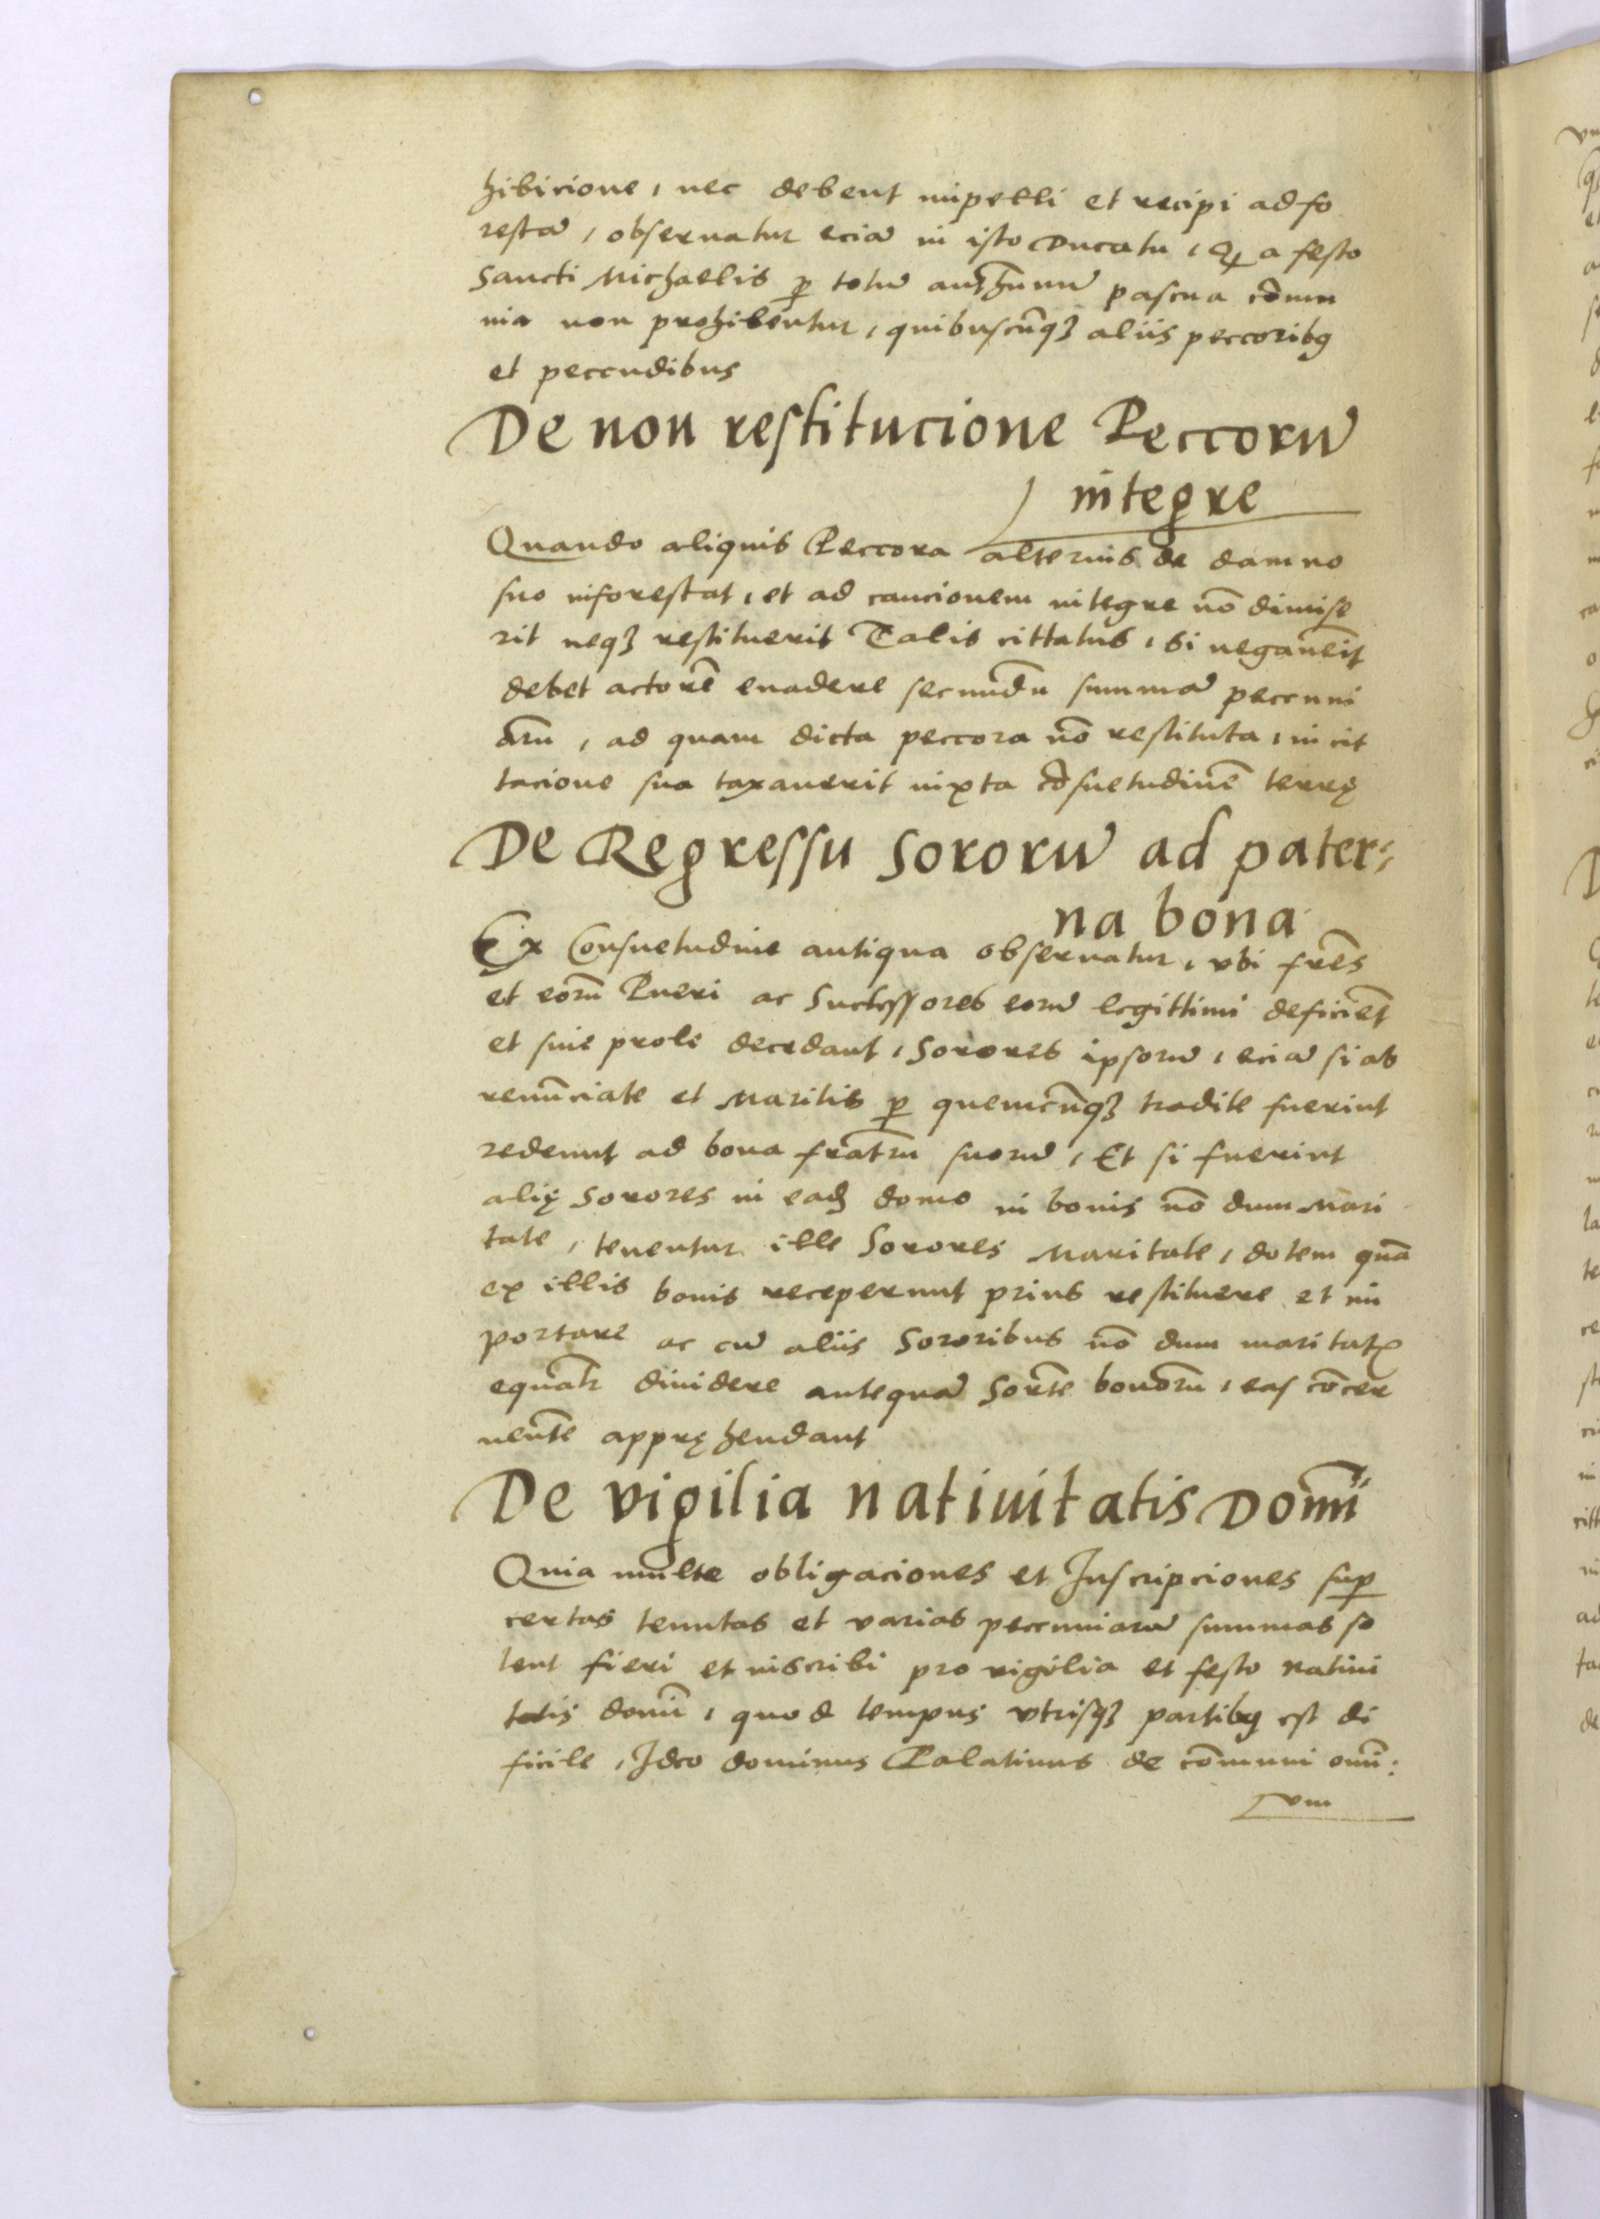 hibicione, nec debent impelli et recipi ad fo
restã, obseruatur eciã in isto Ducatu, Qꝫ a festo
Sancti Michaelis ꝑ totũ authũnũ pascua cõmu
nia non prohibentur, quibuscũqꝫ aliis peccoribꝰ
et peccudibus
De non restitucione Peccorũ
integre
Quando aliquis Peccora alterius de damno
suo inforestat, et ad caucionem integre nõ dimise
rit neqꝫ restituerit Talis cittatus, si negauerit
debet actorẽ euadere secundũ summã peccuni
arũ, ad quam dicta peccora nõ restituta, in cit
tacione sua taxauerit iuxta cõsuetudinẽ terrę
De Regressu Sororũ ad pater:
na bona
Ex Consuetudine antiqua obseruatur, vbi fr̃es
et eorũ Pueri ac Successores eorũ legittimi deficiẽt
et sine prole decedant, Sorores ipsorũ, eciã si ab
renũciate et Maritis ꝑ quemcũqꝫ tradite fuerint
redeunt ad bona fratrũ suorũ, Et si fuerint
alię Sorores in eadꝫ domo in bonis nõ dum Mari
tate, tenentur ille Sorores Maritate, dotem quã
ex illis bonis receperunt prius restituere et im
portare ac cũ aliis Sororibus nõ dum maritatꝭ
equalr̃ diuidere antequã Sortẽ bonorũ, eas cõcer
nentẽ apprę hendant
De vigilia natiuitatis Domĩ
Quia multe obligaciones et Inscripciones suꝑ
certas tenutas et varias peccuniarũ summas so
lent fieri et inscribi pro vigilia et festo natiui
tatis domĩ, quod tempus vtrisqꝫ partibꝰ est di
ficile, Ideo dominus Palatinus de cõmuni omĩ:
vm